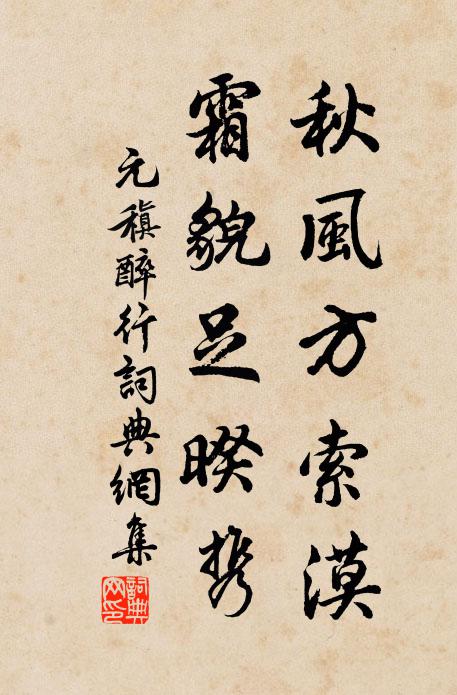 秋風方索漠
霜貌足暌携
元稹醉行詞典網集